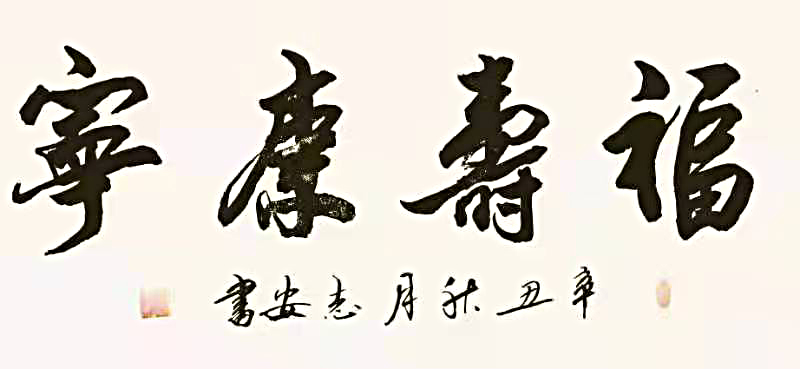 福壽康寧
辛丑秋月志安書